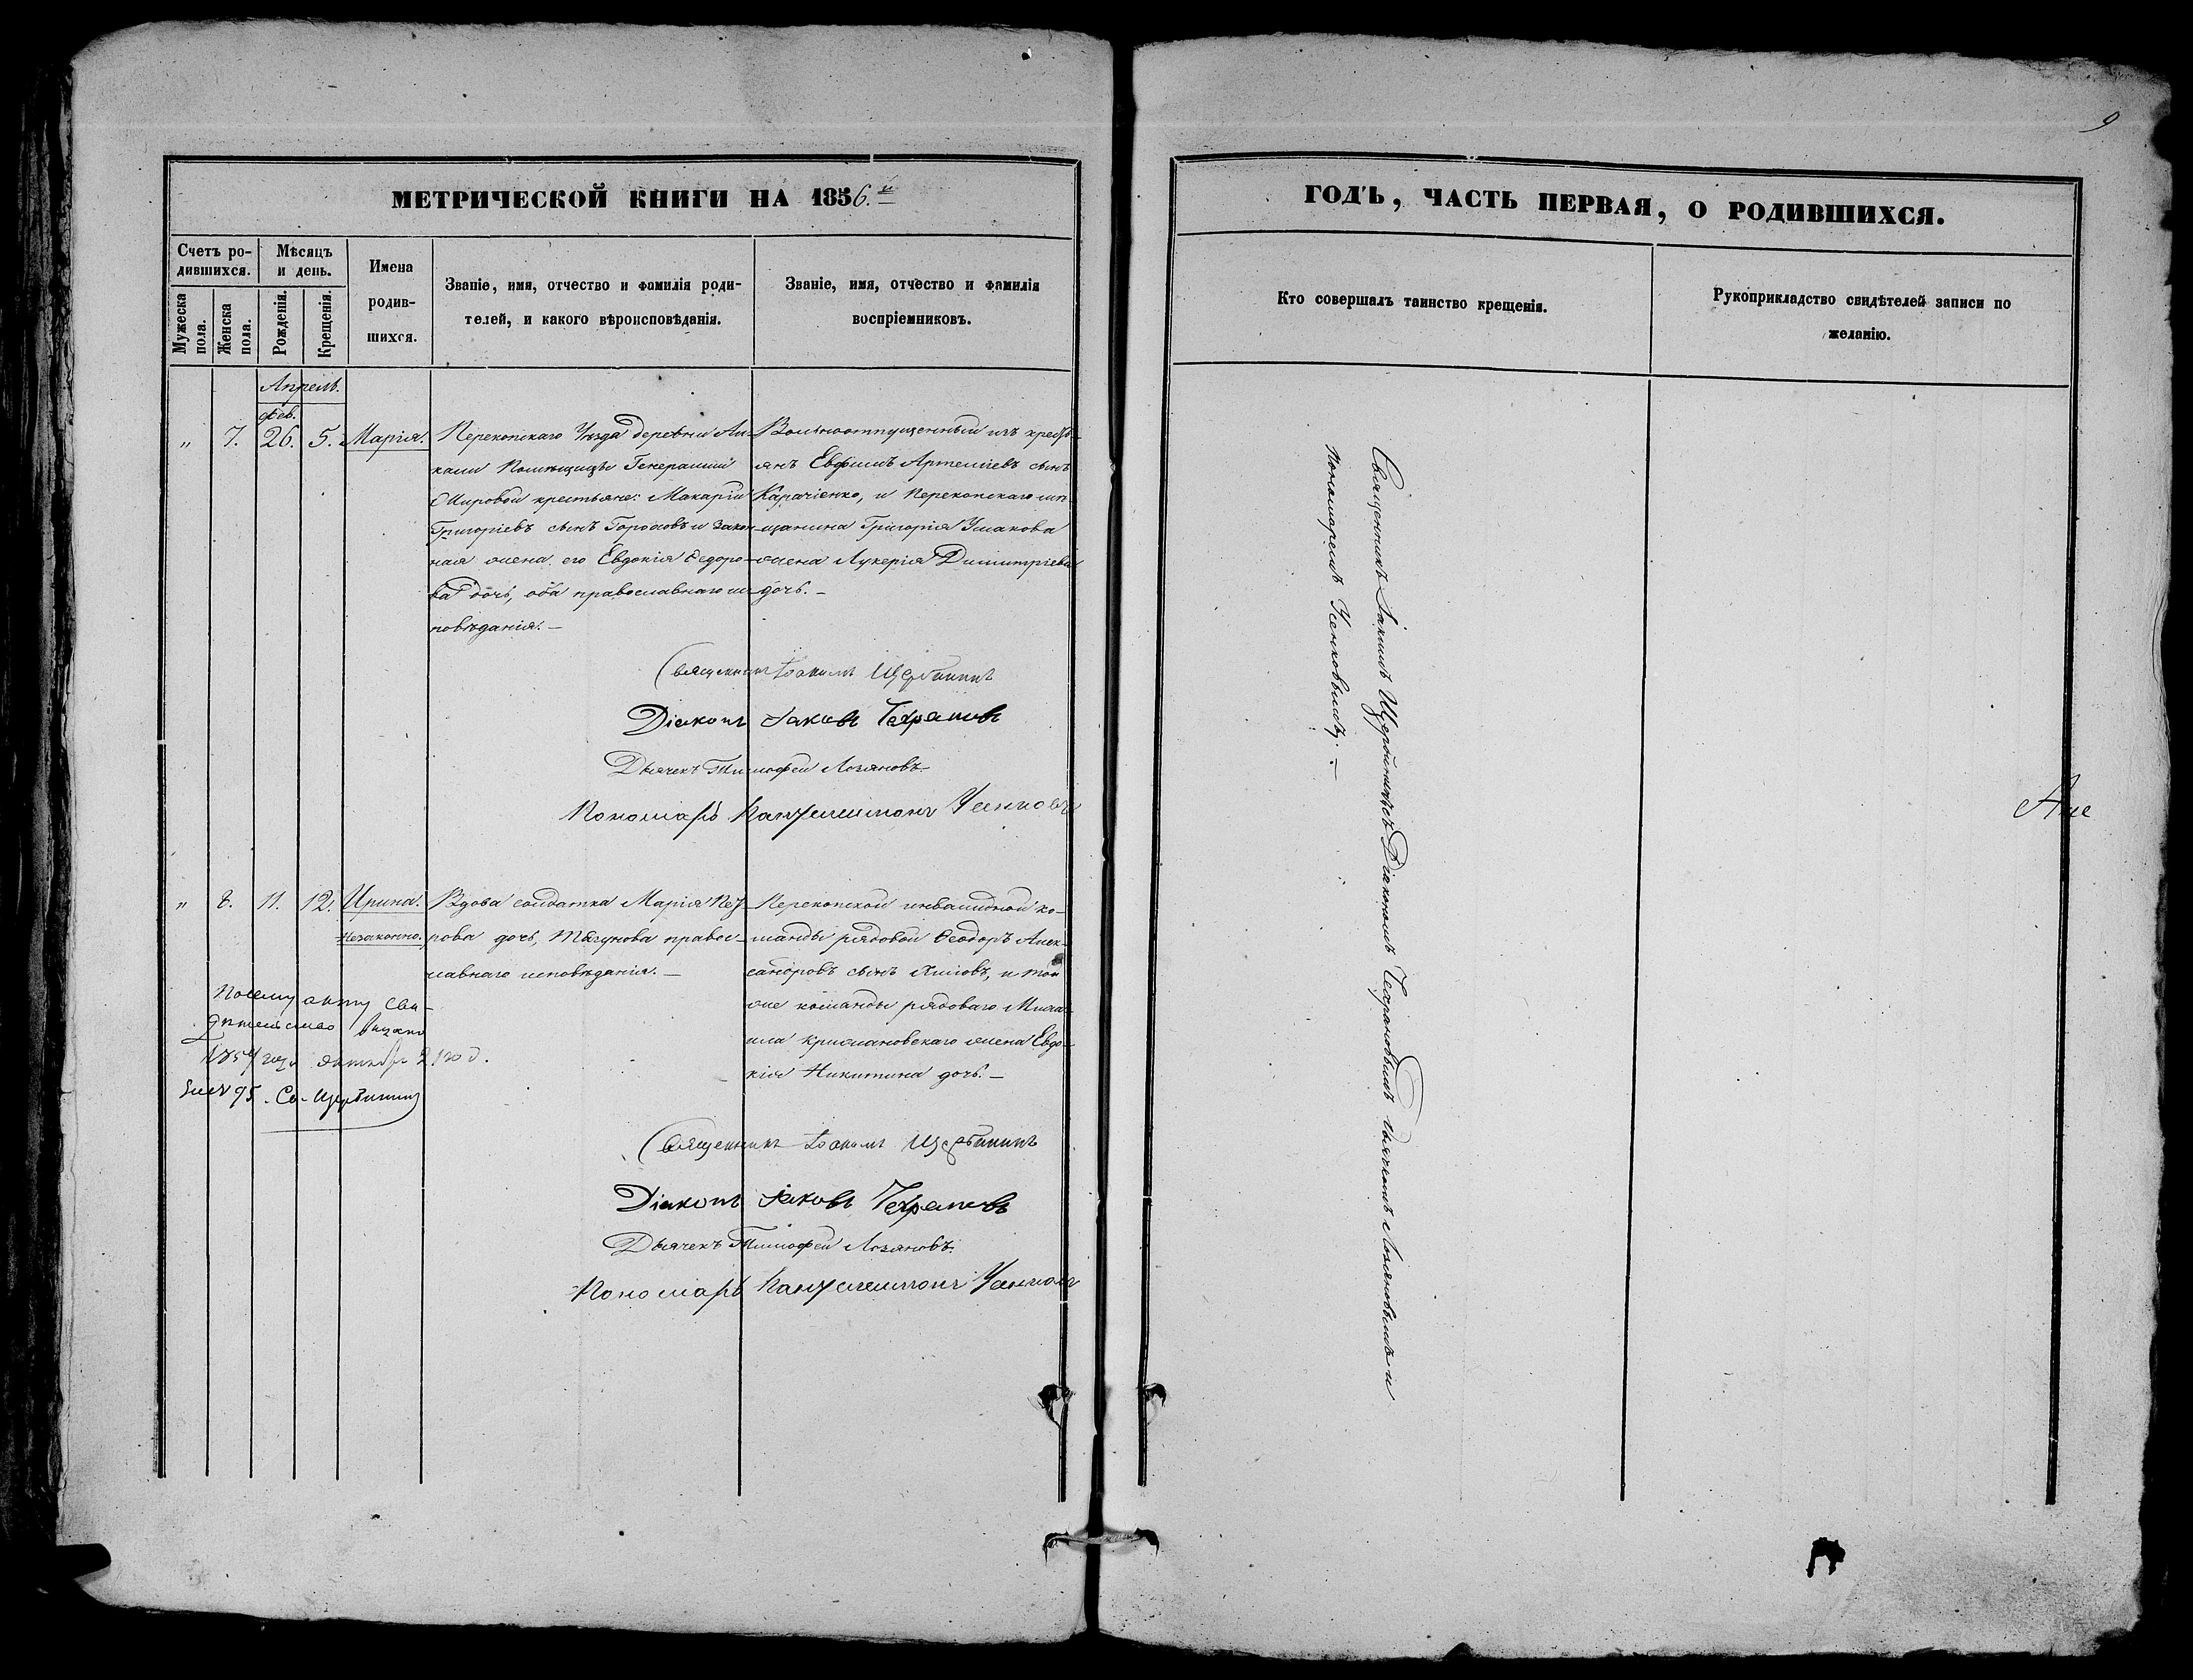 9
МЕТРИЧЕСКОЙ КНИГИ НА 1856.й
ГОДЪ, ЧАСТЬ ПЕРВАЯ, О РОДИВШИХСЯ.
Счетъ ро-
дившихся.
Мѣсяцъ
и день.
Мужеска
пола.
Женска
пола.
Рожденія.
Крещенія.
Имена
родив-
шихся.
Званіе, имя, отчество и фамилія роди-
телей, и какого вѣроисповѣданія.
Званіе, имя, отчество и фамилія
воспріемниковъ.
Кто совершалъ таинство крещенія.
Рукоприкладство свидѣтелей записи по
желанію.
Апрель.
фев.
" 7. 26. 5. Марія.
Перекопскаго Уѣзда деревни
Помѣщицы Генеральши
крестьяне: Макарій
Григоріевъ сынъ и закон-
ная жена его Евдокія Федоро-
ва дочь, оба православнаго ис-
повѣданія. —
Вольноотпущенный изъ кресть-
янъ Евфимъ Артеміевъ сынъ
Карачіенко, и Перекопскаго мѣ-
щанина Григорія Ушакова
жена Лукерія Димитріева
дочь. —
Священникъ Іоакимъ Щербининъ
Діаконъ Іаковъ
Дьячекъ Тимофей Лозяновъ
Пономарь Пантелеимонъ
" 8. 11. 12. Ирина.
Незаконно.
Вдова солдатка Марія Пет-
рова дочь, православ-
лавнаго исповѣданія. —
Перекопской инвалидной ко-
манды рядовой Феодоръ Алек-
сандровъ сынъ и той
же команды рядоваго Миха-
ила жена Евдо-
кія Никитина дочь. —
По сему акту сви-
дѣтельство выдано
185 года октября 2
за № 95. Св. Щербининъ
Священникъ Іоакимъ Щербининъ
Діаконъ Іаковъ
Дьячекъ Тимофей Лозяновъ.
Пономарь Пантелеимонъ
Священникъ Іакимъ Щербининъ съ Діакономъ дьячкомъ Лозяновымъ и
пономаремъ —